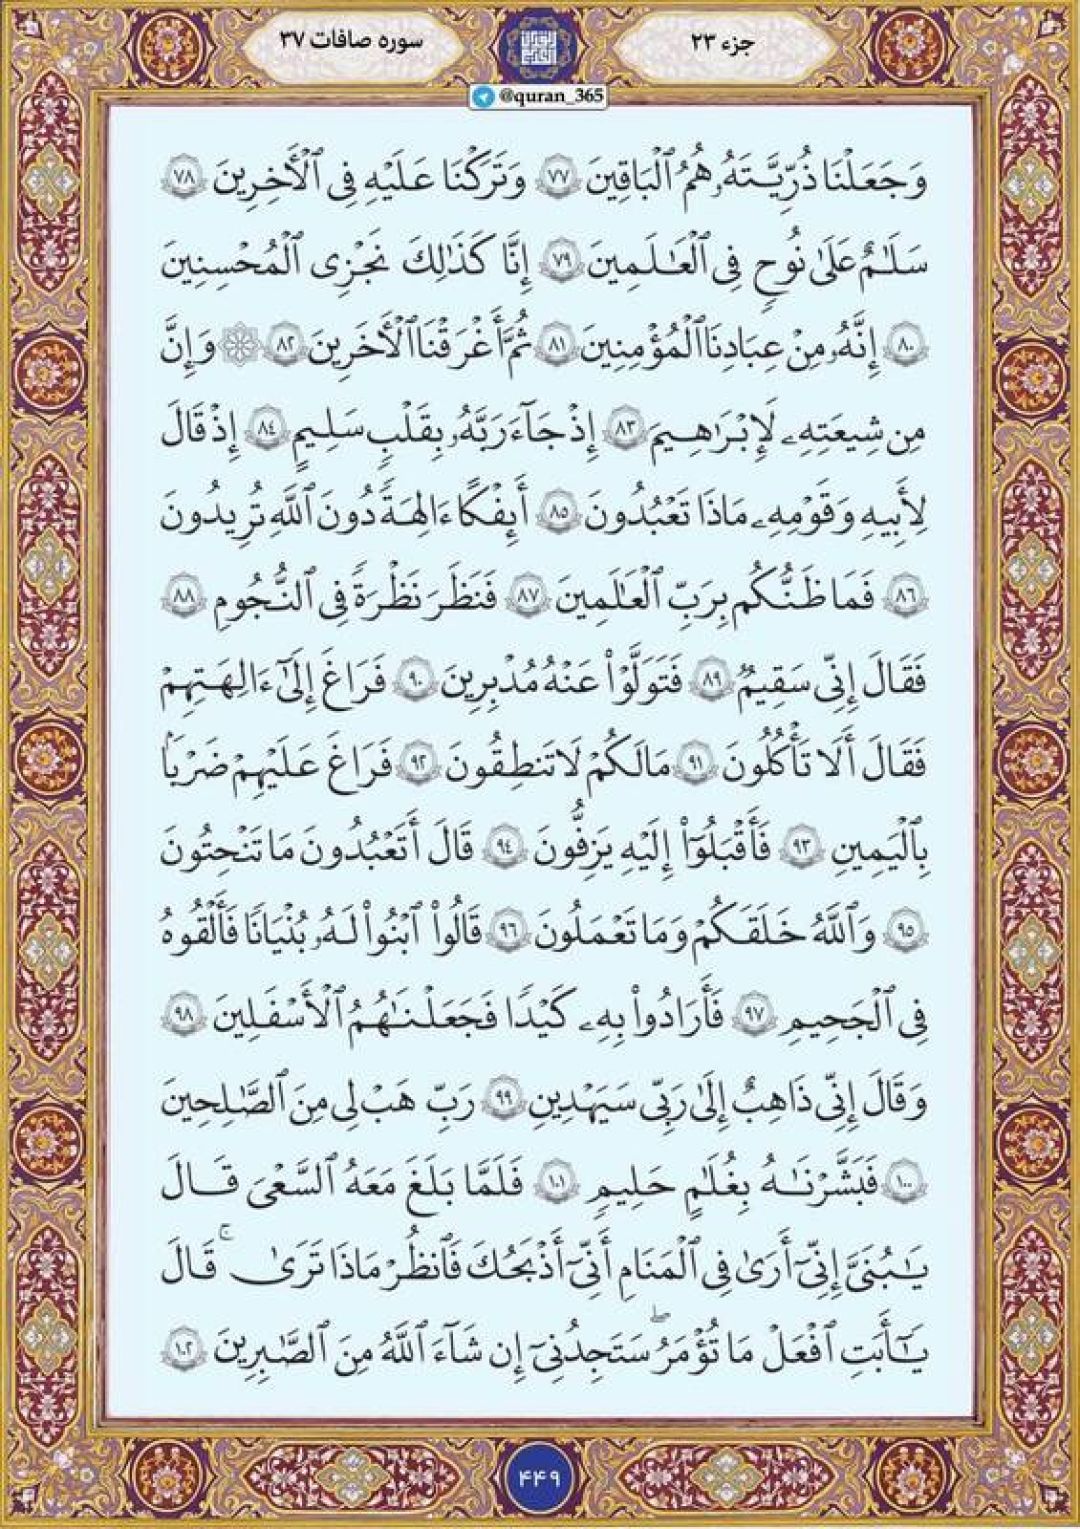 جزء ۲۳
سوره صافات ۳۷
@quran_365
وَجَعَلْنَا ذُرِّيَّتَهُۥ هُمُ ٱلْبَاقِينَ ٧٧ وَتَرَكْنَا عَلَيْهِ فِى ٱلْأَخِرِينَ ٧٨
سَلَٰمٌ عَلَىٰ نُوحٍ فِى ٱلْعَٰلَمِينَ ٧٩ إِنَّا كَذَٰلِكَ نَجْزِى ٱلْمُحْسِنِينَ
٨٠ إِنَّهُۥ مِنْ عِبَادِنَا ٱلْمُؤْمِنِينَ ٨١ ثُمَّ أَغْرَقْنَا ٱلْأَخَرِينَ ٨٢ ۞ وَإِنَّ
مِن شِيعَتِهِۦ لَإِبْرَٰهِيمَ ٨٣ إِذْ جَآءَ رَبَّهُۥ بِقَلْبٍ سَلِيمٍ ٨٤ إِذْ قَالَ
لِأَبِيهِ وَقَوْمِهِۦ مَاذَا تَعْبُدُونَ ٨٥ أَئِفْكًا ءَالِهَةً دُونَ ٱللَّهِ تُرِيدُونَ
٨٦ فَمَا ظَنُّكُم بِرَبِّ ٱلْعَٰلَمِينَ ٨٧ فَنَظَرَ نَظْرَةً فِى ٱلنُّجُومِ ٨٨
فَقَالَ إِنِّى سَقِيمٌ ٨٩ فَتَوَلَّوْا۟ عَنْهُ مُدْبِرِينَ ٩٠ فَرَاغَ إِلَىٰٓ ءَالِهَتِهِمْ
فَقَالَ أَلَا تَأْكُلُونَ ٩١ مَا لَكُمْ لَا تَنطِقُونَ ٩٢ فَرَاغَ عَلَيْهِمْ ضَرْبًۢا
بِٱلْيَمِينِ ٩٣ فَأَقْبَلُوٓا۟ إِلَيْهِ يَزِفُّونَ ٩٤ قَالَ أَتَعْبُدُونَ مَا تَنْحِتُونَ
٩٥ وَٱللَّهُ خَلَقَكُمْ وَمَا تَعْمَلُونَ ٩٦ قَالُوا۟ ٱبْنُوا۟ لَهُۥ بُنْيَٰنًا فَأَلْقُوهُ
فِى ٱلْجَحِيمِ ٩٧ فَأَرَادُوا۟ بِهِۦ كَيْدًا فَجَعَلْنَٰهُمُ ٱلْأَسْفَلِينَ ٩٨
وَقَالَ إِنِّى ذَاهِبٌ إِلَىٰ رَبِّى سَيَهْدِينِ ٩٩ رَبِّ هَبْ لِى مِنَ ٱلصَّٰلِحِينَ
١٠٠ فَبَشَّرْنَٰهُ بِغُلَٰمٍ حَلِيمٍ ١٠١ فَلَمَّا بَلَغَ مَعَهُ ٱلسَّعْىَ قَالَ
يَٰبُنَىَّ إِنِّىٓ أَرَىٰ فِى ٱلْمَنَامِ أَنِّىٓ أَذْبَحُكَ فَٱنظُرْ مَاذَا تَرَىٰ ۚ قَالَ
يَٰٓأَبَتِ ٱفْعَلْ مَا تُؤْمَرُ ۖ سَتَجِدُنِىٓ إِن شَآءَ ٱللَّهُ مِنَ ٱلصَّٰبِرِينَ ١٠٢
۴۴۹